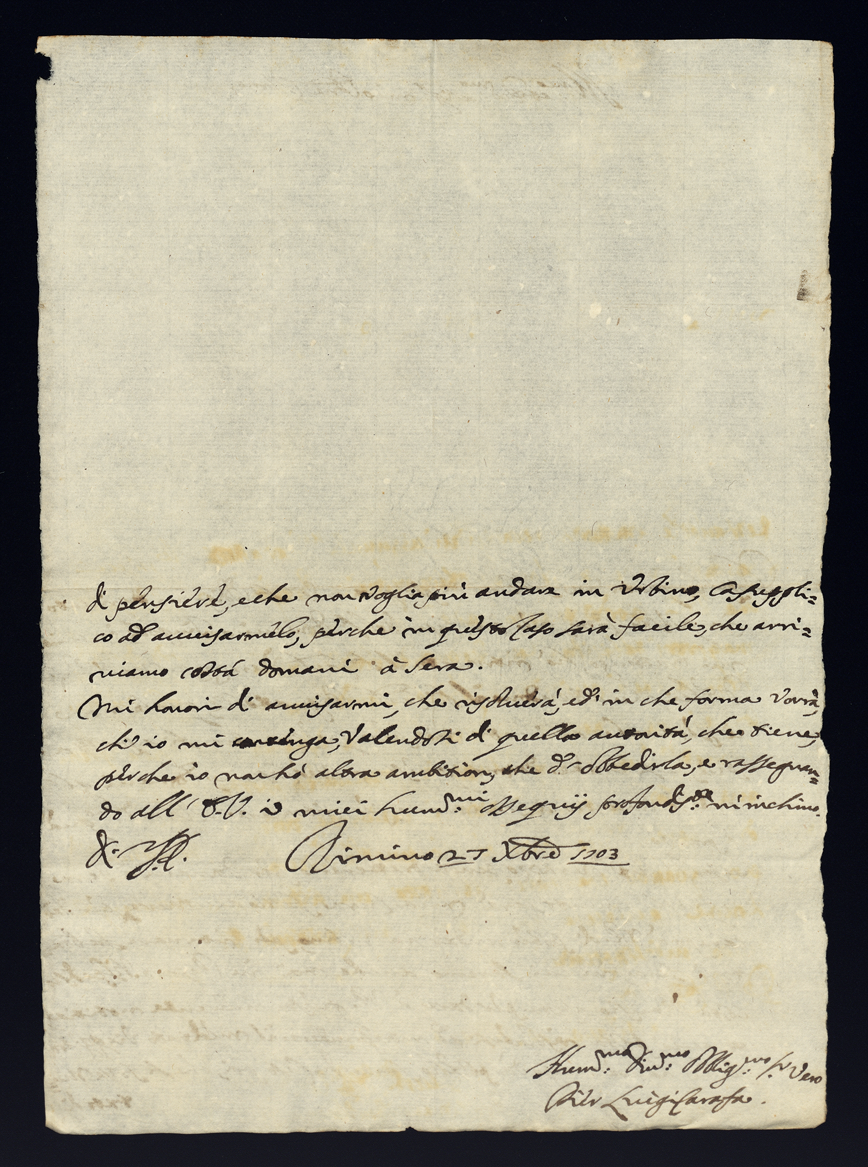 di pensiere, e che non voglia più andare in Urbino, la suppli=
co ad avvisarmelo, perche in questo caso sarà facile, che arri=
viamo costà domani à sera.
Mi honori di avvisarmi, che risolverà, ed in che forma vorrà,
ch'io mi contenga, valendosi di quella autorità, che tiene,
perche io non hò altra ambition, che d'obbedirla, e rassegnan=
do all' E.V. i miei humᵐⁱ ossequij profondisᵗᵉ m'inchino.
Di V.E. Rimino 27 Xbre 1703
Humᵐᵒ Divᵐᵒ Obligᵐᵒ Sr Vero
Pier Luigi Carafa.